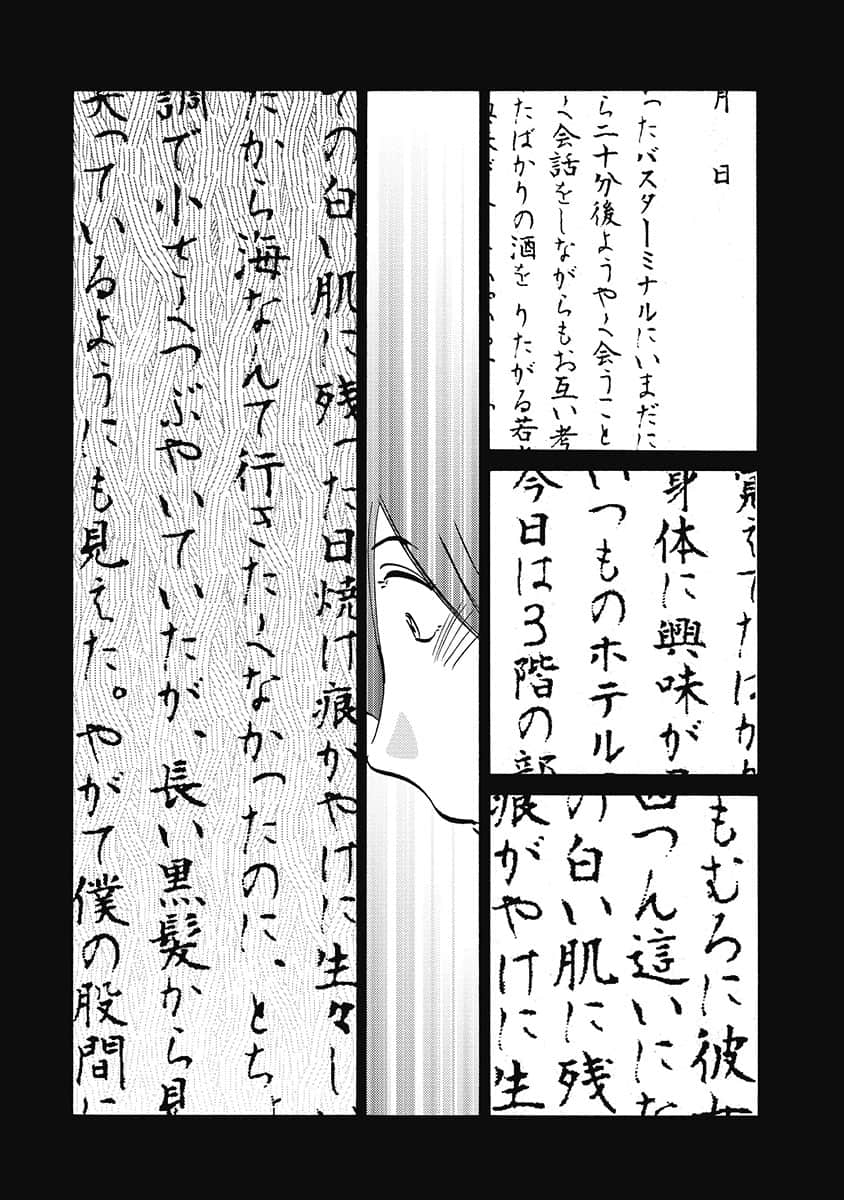 月　日
ったバスターミナルにいまだに
ら二十分後ようやく会うこと
く会話をしながらもお互い考
たばかりの酒を　りたがる若
覚えたばか
身体に興味が
いつものホテル
今日は3階の部
もむろに彼女
四つん這いにな
の白い肌に残
痕がやけに生
ての白い肌に残った日焼け痕がやけに生々しい
だから海なんて行きたくなかったのに、とち
調で小さくつぶやいていたが、長い黒髪から見
笑っているようにも見えた。やがて僕の股間に